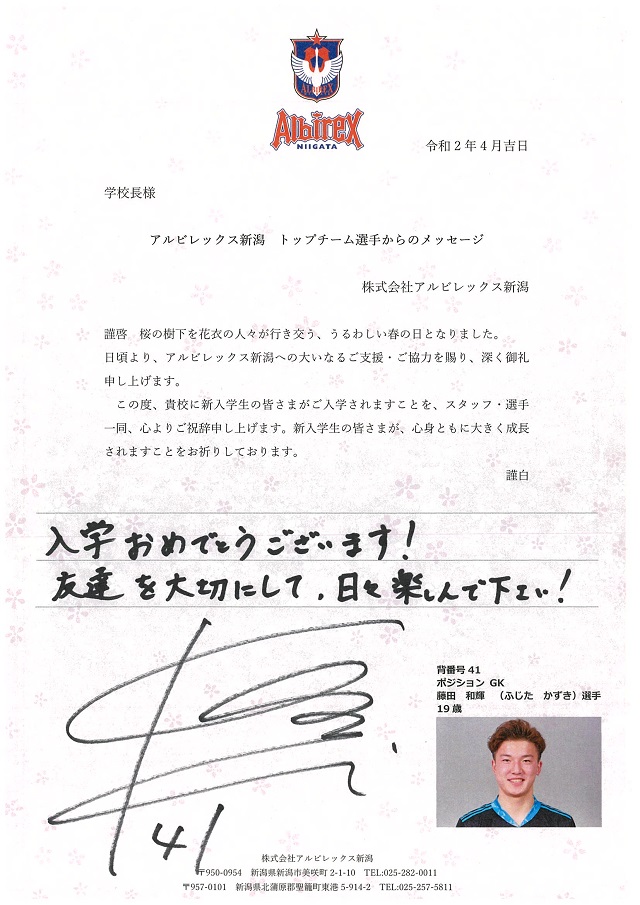 ALBIREX
Albirex
NIIGATA
令和2年4月吉日
学校長様
アルビレックス新潟　トップチーム選手からのメッセージ
株式会社アルビレックス新潟
謹啓　桜の樹下を花衣の人々が行き交う、うるわしい春の日となりました。
日頃より、アルビレックス新潟への大いなるご支援・ご協力を賜り、深く御礼
申し上げます。
　この度、貴校に新入学生の皆さまがご入学されますことを、スタッフ・選手
一同、心よりご祝辞申し上げます。新入学生の皆さまが、心身ともに大きく成長
されますことをお祈りしております。
謹白
入学おめでとうございます!
友達を大切にして、日々楽しんで下さい!
41
背番号 41
ポジション GK
藤田　和輝　（ふじた　かずき）選手
19歳
株式会社アルビレックス新潟
〒950-0954　新潟県新潟市美咲町 2-1-10　TEL:025-282-0011
〒957-0101　新潟県北蒲原郡聖籠町東港 5-914-2　TEL:025-257-5811